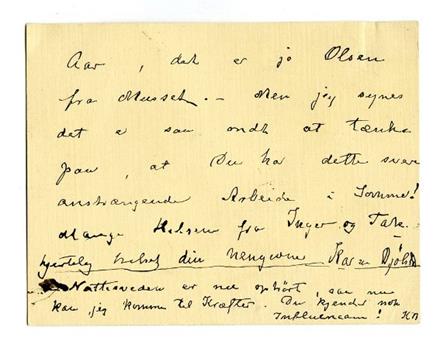 Aar, det er jo Olsen
fra Musset. - Men jeg synes
det er saa ondt at tænke
paa, at Du har dette svære
anstrængende Arbeide i Sommer!
Mange Hilsen fra Inger og Tak.
hjertelig hilset din hengivne Karen
Nattesveden er nu ophørt, saa nu
kan jeg komme til Kræfter. Du kjender nok
Influenzaen!